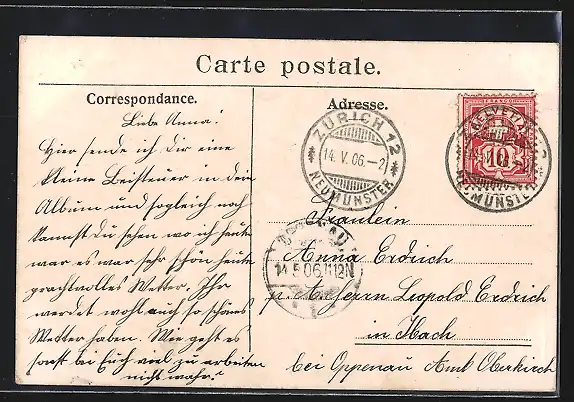 Carte postale.
Correspondance.
Adresse.
Liebe Anna!
Hier sende ich Dir eine
kleine Beisteuer in dein
Album und sogleich noch
kannst Du sehen wo ich heute
war es war sehr schön heute
prachtvolles Wetter. Ihr
werdet wohl auch so schönes
Wetter haben. Wie geht es
sonst bei Euch viel zu arbeiten
nicht wahr?
ZÜRICH 12
14. V. 06.–2
NEUMÜNSTER
HELVETIA
10
NEUMÜNSTER
14.5.06.11-12N
Fräulein
Anna Erdrich
p. A. Herrn Leopold Erdrich
in Ibach
bei Oppenau Amt Oberkirch